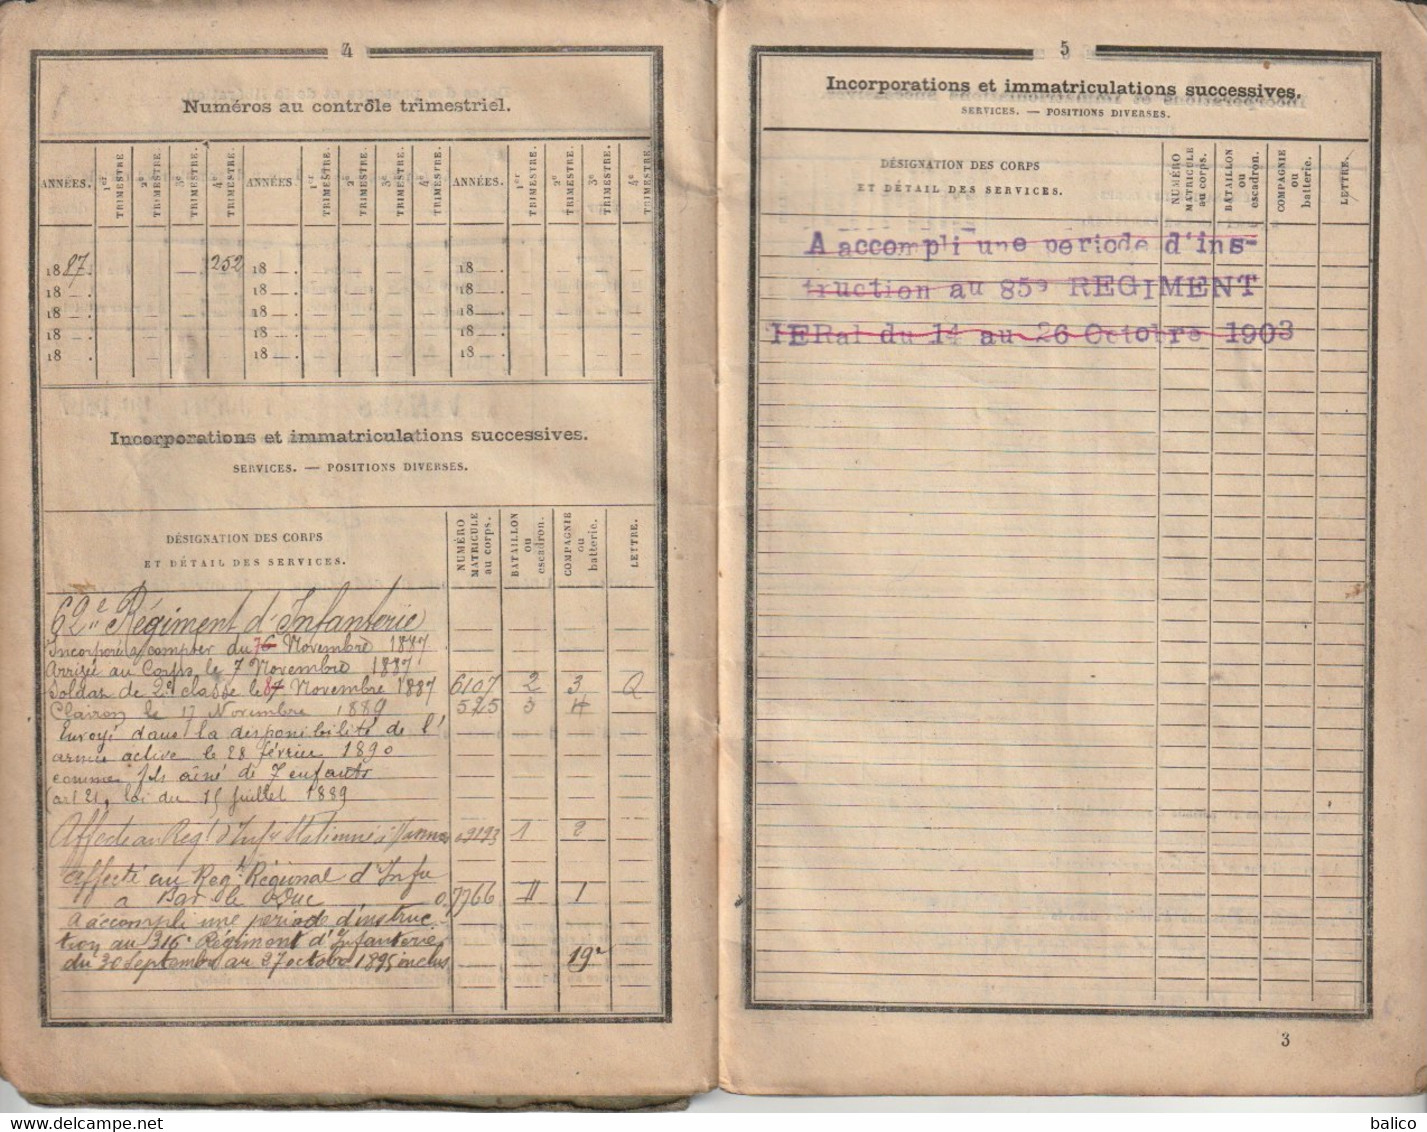 4
Numéros au contrôle trimestriel.
ANNÉES. 1er TRIMESTRE 2e TRIMESTRE. 3e TRIMESTRE. 4e TRIMESTRE. ANNÉES 1er TRIMESTRE. 2e TRIMESTRE. 3e TRIMESTRE. 4e TRIMESTRE. ANNÉES. 1er TRIMESTRE. 2e TRIMESTRE. 3e TRIMESTRE. 4e TRIMESTRE.
1887. 252 18 — . 18 — .
18 — . 18 — . 18 — .
18 — . 18 — . 18 — .
18 — . 18 — . 18 — .
18 . 18 — . 18 — .
Incorporations et immatriculations successives.
SERVICES. — POSITIONS DIVERSES.
DÉSIGNATION DES CORPS
ET DÉTAIL DES SERVICES.
NUMÉRO MATRICULE au corps.
BATAILLON ou escadron.
COMPAGNIE ou batterie.
LETTRE.
62e Régiment d'Infanterie
Incorporé à compter du Novembre 1887
Arrivé au Corps le 7 Novembre 1887
Soldat de 2e classe le Novembre 1887 6107 2 3 Q
Clairon le 17 Novembre 1889 525 3 4
Envoyé dans la disponibilité de l'
armée active le 28 février 1890
comme fils aîné de 7 enfants
(art 21, loi du 15 juillet 1889
Affecté au Regt d'Infie Stationné à 1 2
affecté au Regt Régional d'Infie
a Bar le Duc 07766 11 1
a accompli une période d'instruc
tion au 316e Régiment d'Infanterie
du 30 Septembre au 27 octobre 1895 inclus 19e
5
Incorporations et immatriculations successives.
SERVICES. — POSITIONS DIVERSES.
DÉSIGNATION DES CORPS
ET DÉTAIL DES SERVICES.
NUMÉRO MATRICULE au corps.
BATAILLON ou escadron.
COMPAGNIE ou batterie.
LETTRE.
A accompli une periode d'ins-
truction au 85e REGIMENT
TERal du 14 au 26 Octobre 1903
3
balico